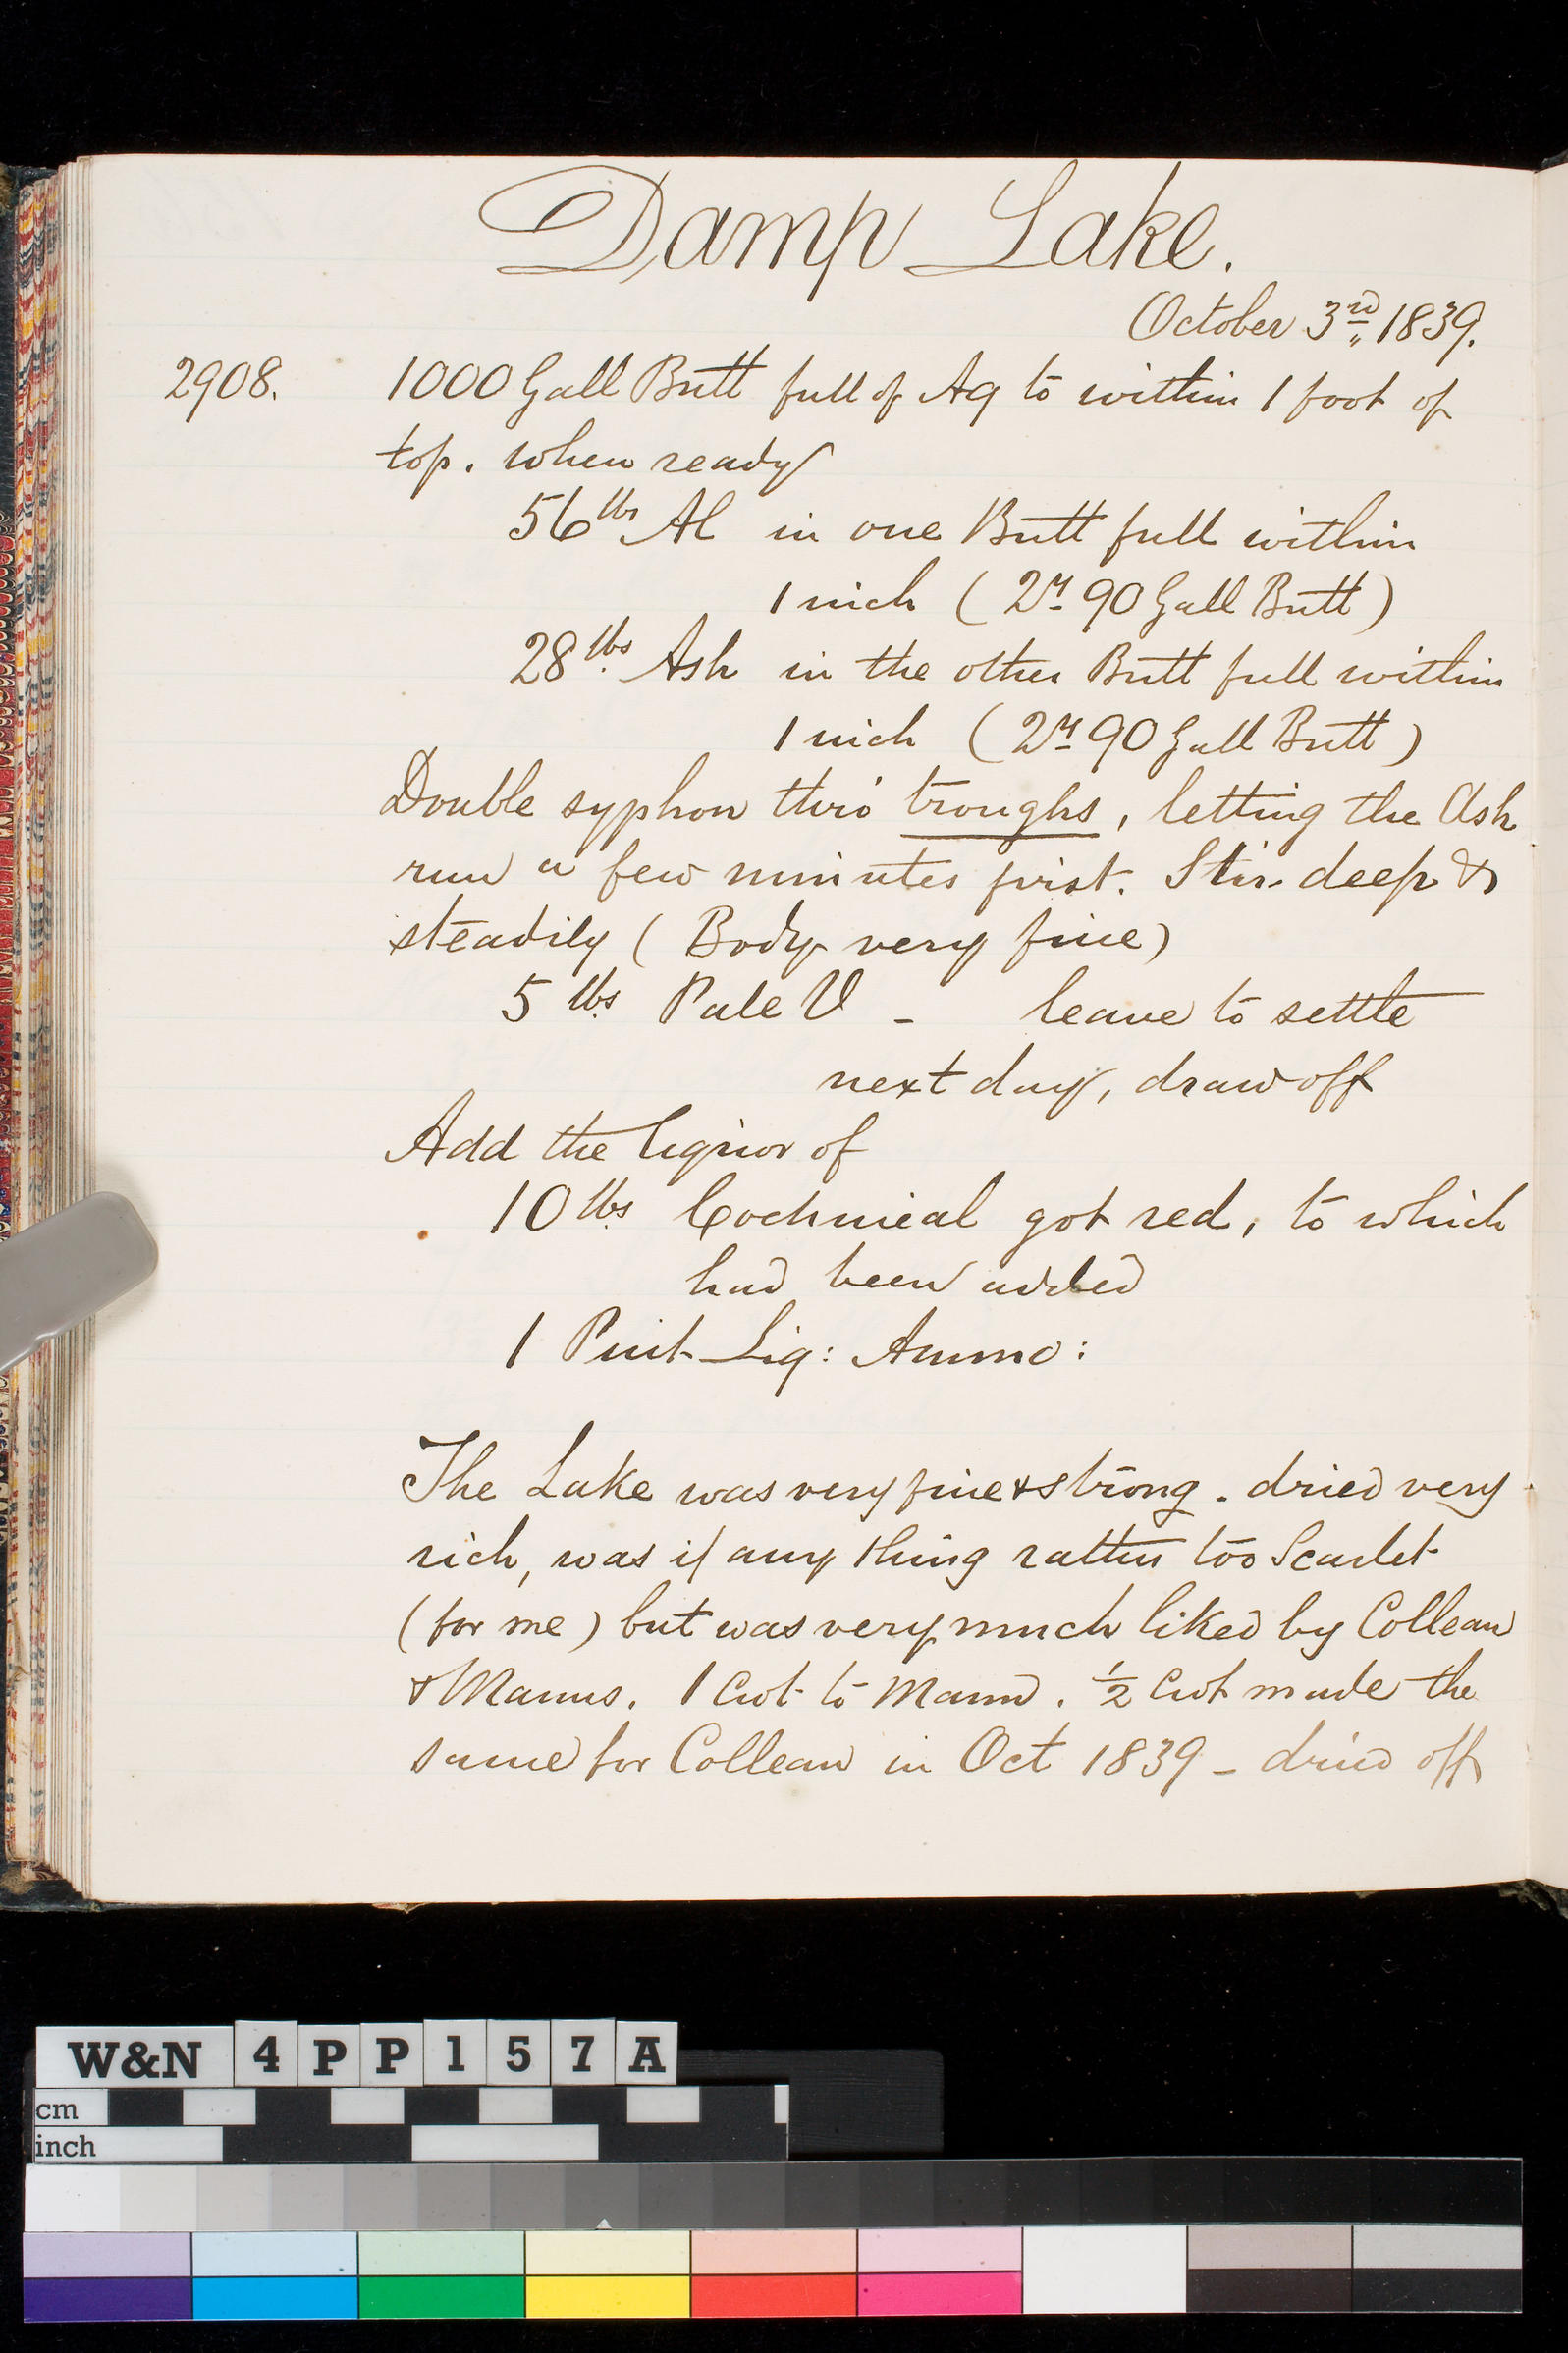 Damp Lake.
October 3rd 1839.
2908. 1000 Gall Butt full of Aq to within 1 foot of
top. when ready
56 lbs Al in one Butt full within
1 inch ( 290 Gall Butt )
28 lbs Ash in the other Butt full within
1 inch ( 290 Gall Butt )
Double syphon thro' troughs, letting the Ash
run a few minutes first. Stir deep &
steadily ( Body very fine )
5 lbs Pale V - leave to settle
next day, draw off
Add the liquor of
10 lbs Cochineal got red, to which
had been added
1 Pint Liq: Ammo:
The Lake was very fine & strong. dried very
rich, was if any thing rather too Scarlet
(for me) but was very much liked by Collean
& Manns. 1 Cwt to Mann. ½ Cwt made the
same for Collean in Oct 1839 - dried off
W&N 4PP157A
cm
inch